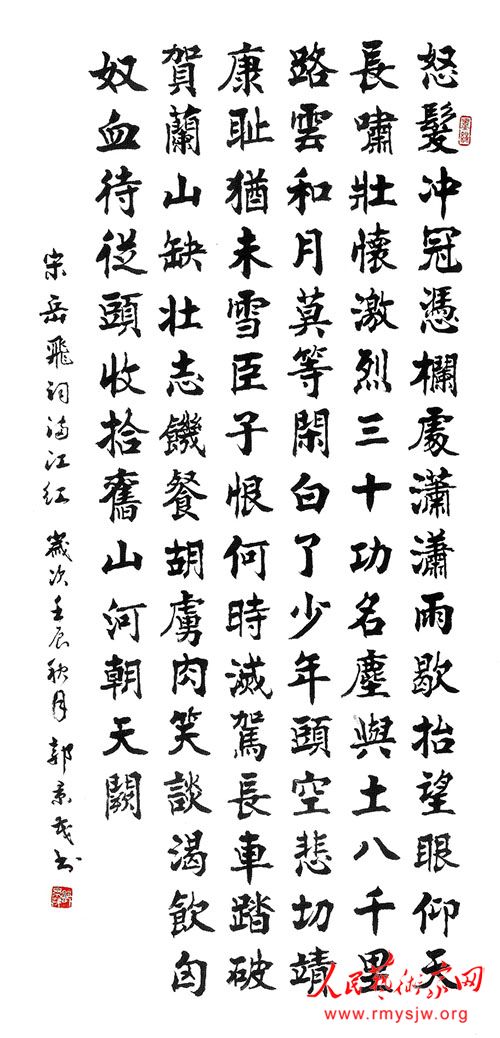 怒髮冲冠憑欄處瀟瀟雨歇抬望眼仰天
長嘯壯懷激烈三十功名塵與土八千里
路雲和月莫等閑白了少年頭空悲切靖
康耻猶未雪臣子恨何時滅駕長車踏破
賀蘭山缺壮志饑餐胡虜肉笑談渴飲匈
奴血待從頭收拾舊山河朝天闕
宋岳飛詞满江红 歲次壬辰秋月 郭景茂书
人民艺术家网
www.rmysjw.org